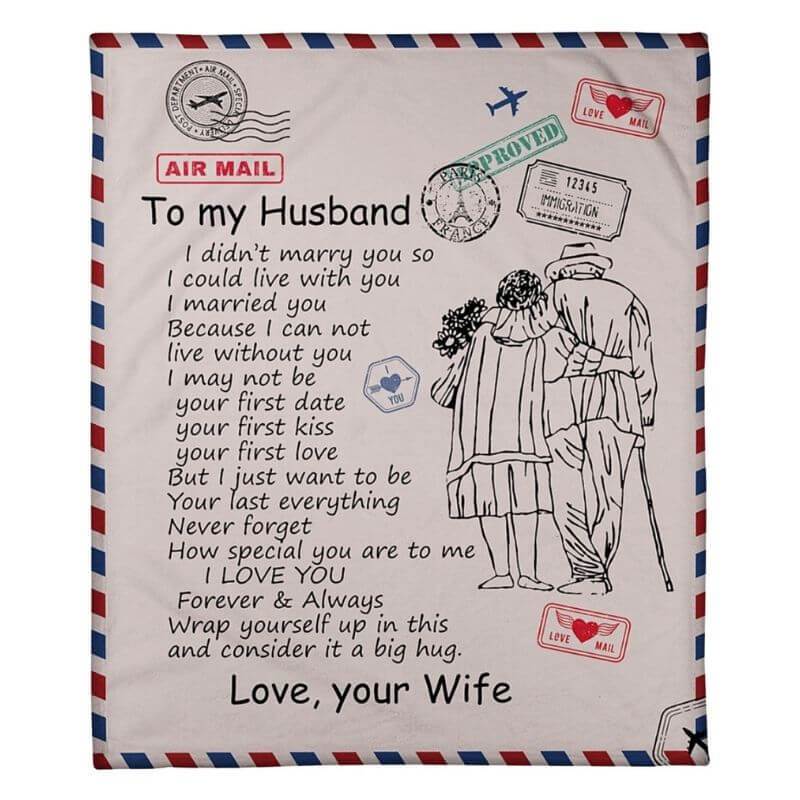 POST DEPARTMENT • AIR MAIL • SPECIAL DELIVERY •
AIR MAIL
LOVE MAIL
APPROVED
PARIS
FRANCE
12345
IMMIGRATION
To my Husband
I didn't marry you so
I could live with you
I married you
Because I can not
live without you
I may not be
your first date
your first kiss
your first love
But I just want to be
Your last everything
Never forget
How special you are to me
I LOVE YOU
Forever & Always
Wrap yourself up in this
and consider it a big hug.
Love, your Wife
I
YOU
LOVE MAIL